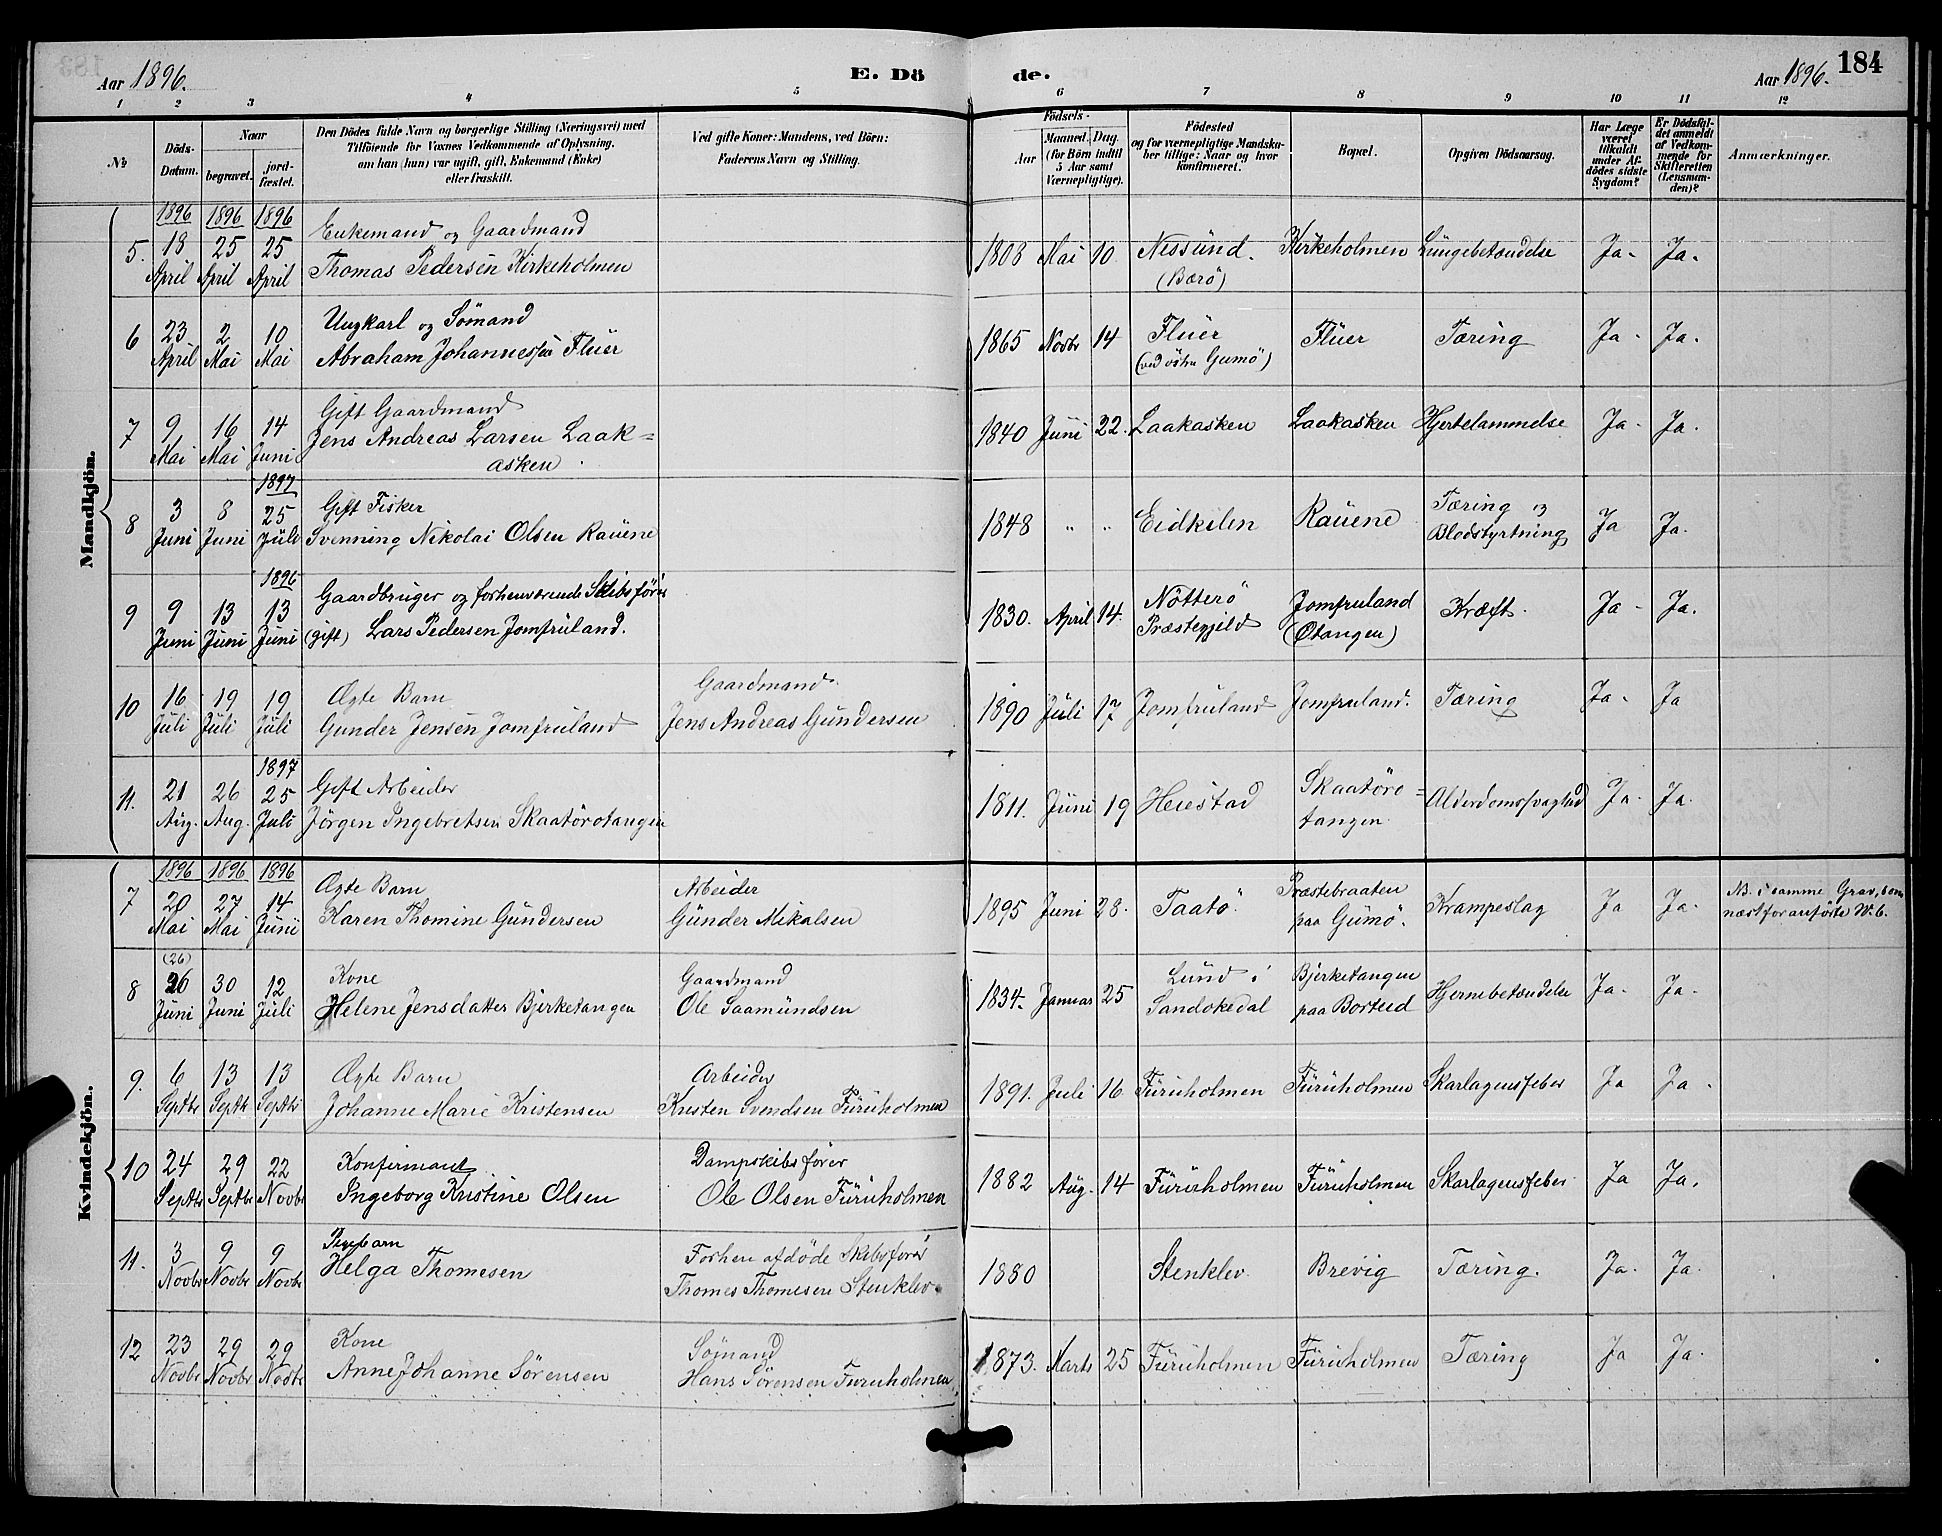 Aar 1896.
E. Dö de.
Aar 1896.
184
1 2 3 4 5 6 7 8 9 10 11 12
No
Döds-Datum.
Naar
begravet.
jord-fæstet.
Den Dödes fulde Navn og borgerlige Stilling (Næringsvei) med
Tilföiende for Voxnes Vedkommende af Oplysning.
om han (hun) var ugift, gift, Enkemand (Enke)
eller fraskilt.
Ved gifte Koner: Mandens, ved Börn:
Faderens Navn og Stilling.
Födsels-
Aar
Maaned. Dag.
(for Börn indtil
5 Aar samt
Værnepligtige).
Födested
og for værnepligtige Mandska-
ber tillige: Naar og hvor
konfirmeret.
Bopæl.
Opgiven Dödsaarsag.
Har Læge
været
tilkaldt
under Af-
dödes sidste
Sygdom?
Er Dödsfal-
det anmeldt
af Vedkom-
mende for
Skifteretten
(Lensman-
den)?
Anmærkninger.
Mandkjön.
1896 1896 1896
5. 18 April 25 April 25 April
Enkemand og Gaardmand
Thomas Pedersen Kirkeholmen
1808 Mai 10 Nessund. (Barö) Kirkeholmen Lungebetændelse Ja - Ja.
6 23 April 2 Mai 10 Mai
Ungkarl og Sömand
Abraham Johannessen Fluer
1865 Novbr 14 Fluer (ved östre Gumö) Fluer Tæring Ja - Ja.
7 9 Mai 16 Mai 14 Juni
Gift Gaardmand
Jens Andreas Larsen Laak=
asken
1840 Juni 22. Laakasken Laakasken Hjertelammelse Ja - Ja.
1897
8 3 Juni 8 Juni 25 Juli
Gift Fisker
Svenning Nikolai Olsen Rauene
1848 " " Eidkilen Rauene Tæring og Blodstyrtning Ja Ja.
1896
9 9 Juni 13 Juni 13 Juni
Gaardbruger og forhenværende Skibsförer
(gift) Lars Pedersen Jomfruland.
1830. April 14. Nötterö Præstegjeld Jomfruland (Øtangen) Kræft. Ja - Ja.
10 16 Juli 19 Juli 19 Juli
Ægte Barn
Gunder Jensen Jomfruland
Gaardmand
Jens Andreas Gundersen
1890 Juli 17 Jomfruland Jomfruland. Tæring Ja - Ja
1897
11. 21 Aug. 26 Aug. 25 Juli
Gift Arbeider
Jörgen Ingebretsen Skaatörotangen
1811. Juni 19 Heistad Skaatörö=tangen Alderdomssvaghed Ja - Ja.
Kvindekjön.
1896 1896 1896
7 20 Mai 27 Mai 14 Juni
Ægte Barn
Karen Thomine Gundersen
Arbeider
Gunder Mikalsen
1895 Juni 28. Taatö. Præstebraaten paa Gumö. Krampeslag Ja Ja.
NB. i samme Grav, som
næst foranförte No. 6.
(26)
8 26 Juni 30 Juni 12 Juli
Kone
Helene Jensdatter Bjerketangen
Gaardmand
Ole Saamundsen
1834. Januar 25 Lund i Sandökedal Bjerketangen paa Borteid Hjernebetændelse Ja - Ja -
9. 6 Septbr 13 Septbr 13 Septbr
Ægte Barn
Johanne Marie Kristensen
Arbeider
Kristen Svendsen Furuholmen
1891. Juli 16 Furuholmen Furuholmen Skarlagensfeber Ja Ja -
10 24 Septbr 29 Septbr 22 Novbr
Konfirmant
Ingeborg Kristine Olsen
Dampskibsförer
Ole Olsen Furuholmen
1882 Aug. 14 Furuholmen Furuholmen Skarlagensfeber Ja Ja.
11. 3 Novbr 9 Novbr 9 Novbr
Pigebarn
Helga Thomesen
Forhen afdöde Skibsförer
Thomes Thomesen Stenklev.
1880 Stenklev. Brevig Tæring. Ja - Ja.
12 23 Novbr 29 Novbr 29 Novbr
Kone
Anne Johanne Sörensen
Sömand
Hans Sörensen Furuholmen
1873. Marts 25 Furuholmen Furuholmen Tæring Ja Ja.